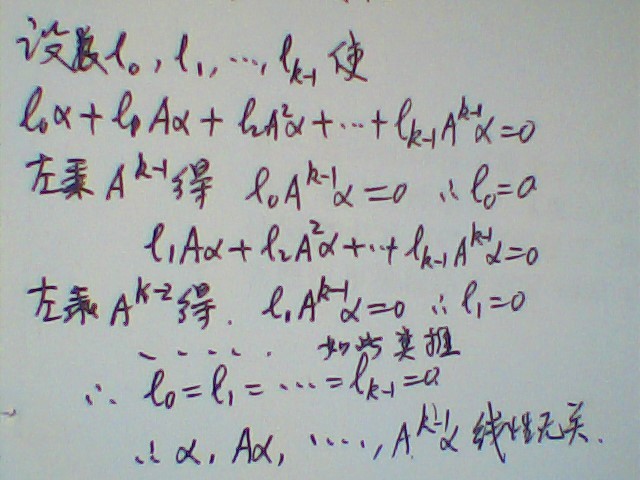 设数l₀, l₁, ..., lₖ₋₁ 使
l₀α + l₁Aα + l₂A²α + ... + lₖ₋₁Aᵏ⁻¹α = 0
左乘 Aᵏ⁻¹得 l₀Aᵏ⁻¹α = 0 ∴ l₀ = 0
l₁Aα + l₂A²α + ... + lₖ₋₁Aᵏ⁻¹α = 0
左乘 Aᵏ⁻²得. l₁Aᵏ⁻¹α = 0 ∴ l₁ = 0
. . . . . . 如此类推
∴ l₀ = l₁ = ... = lₖ₋₁ = 0
∴ α, Aα, ...., Aᵏ⁻¹α 线性无关.